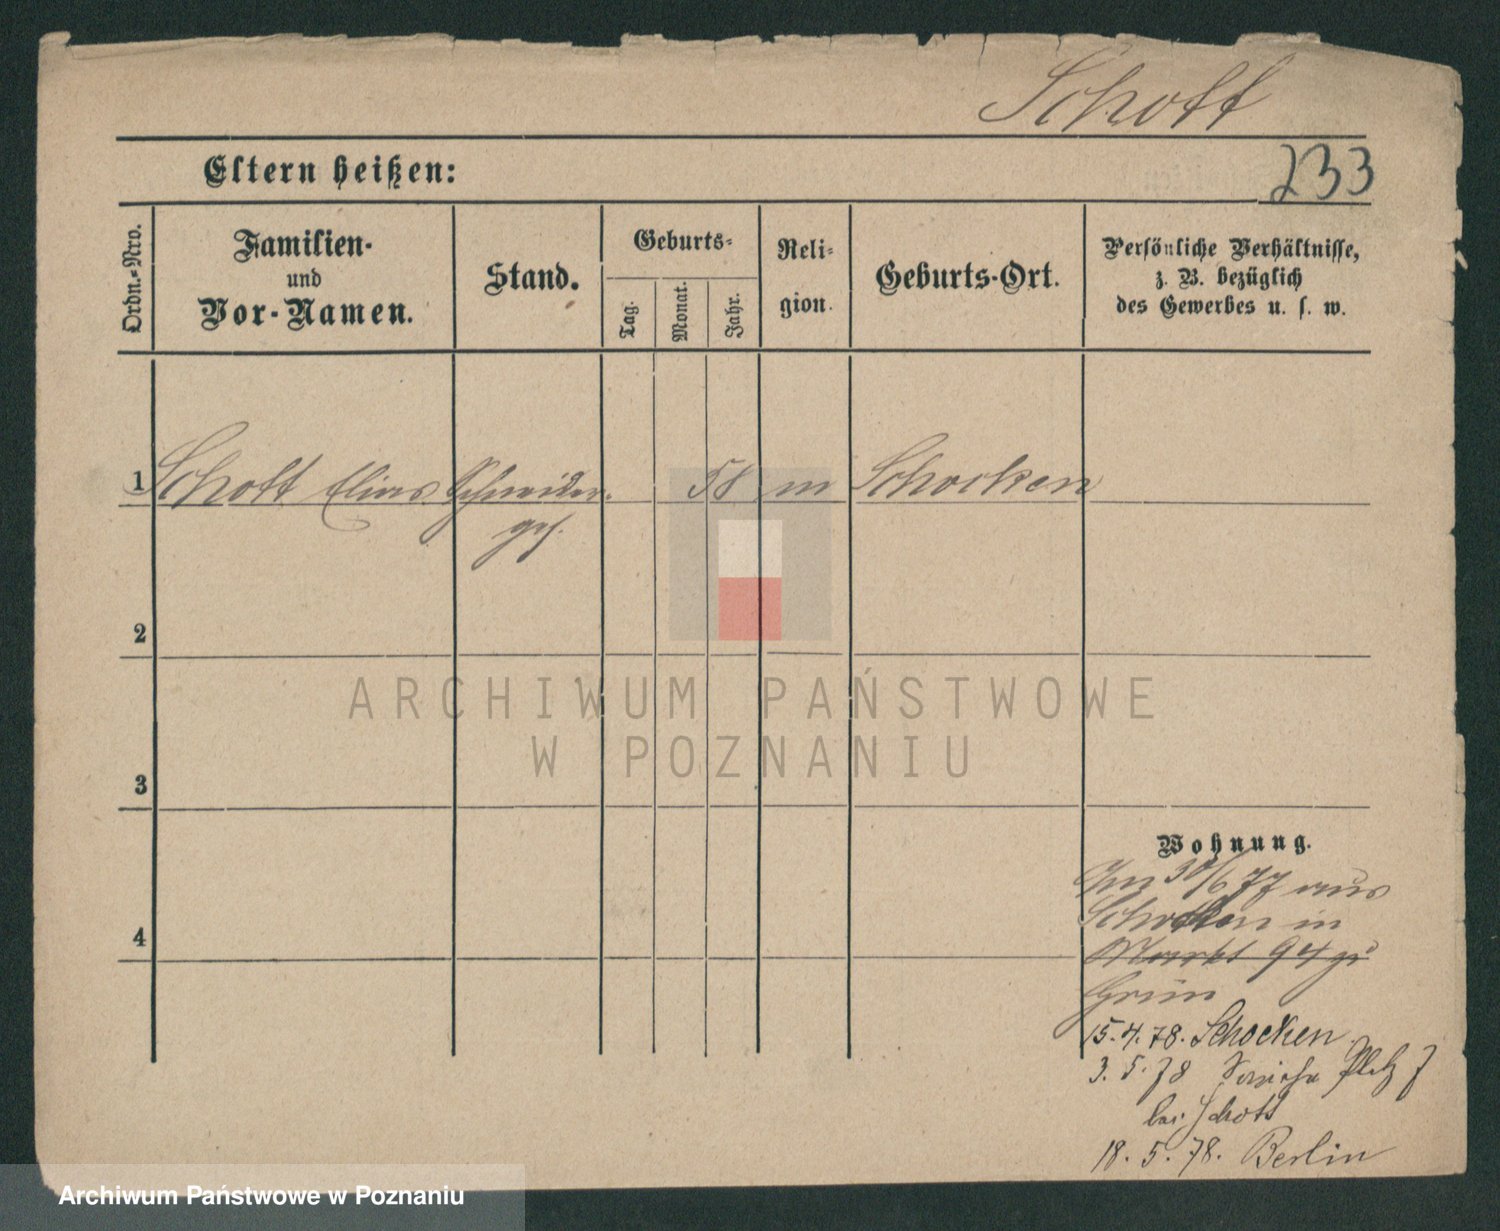 Schott
Eltern heißen:
233
Ordn.-Nro.
Familien-
und
Vor-Namen.
Stand.
Geburts-
Tag.
Monat.
Jahr.
Reli-
gion.
Geburts-Ort.
Persönliche Verhältnisse,
z. B. bezüglich
des Gewerbes u. s. w.
1 Schott Elias Schneider 58 m Schocken
ges.
2
ARCHIWUM PAŃSTWOWE
W POZNANIU
3
Wohnung.
Im 30/6 77 aus
Schocken in
4
Markt 94 zu
Grün
15.4.78. Schocken
3.5.78 Platz 7
bei Schott
18.5.78. Berlin
Archiwum Państwowe w Poznaniu